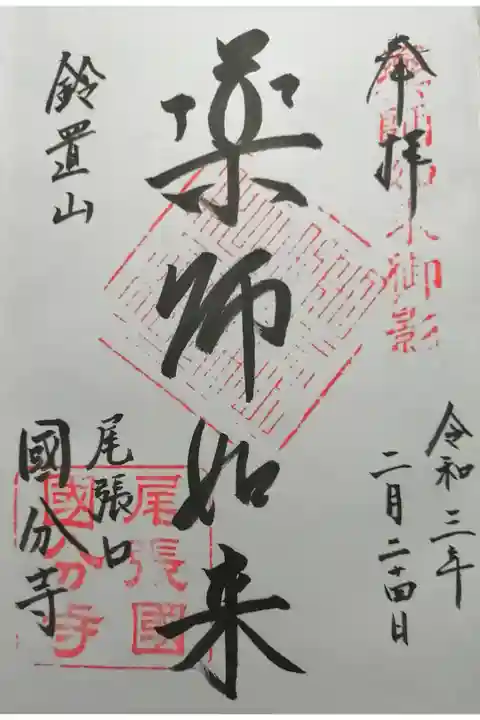 奉拝
薬師如来御影
令和三年
二月二十四日
薬師如来
鈴置山
尾張
國分寺
尾張國
國分寺